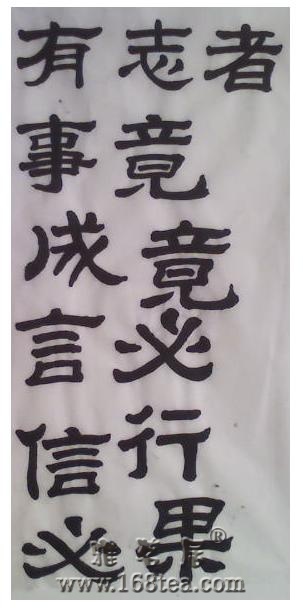 有志者
事竟
成竟
言必
信行
必果
雅茗居®
www.168tea.com